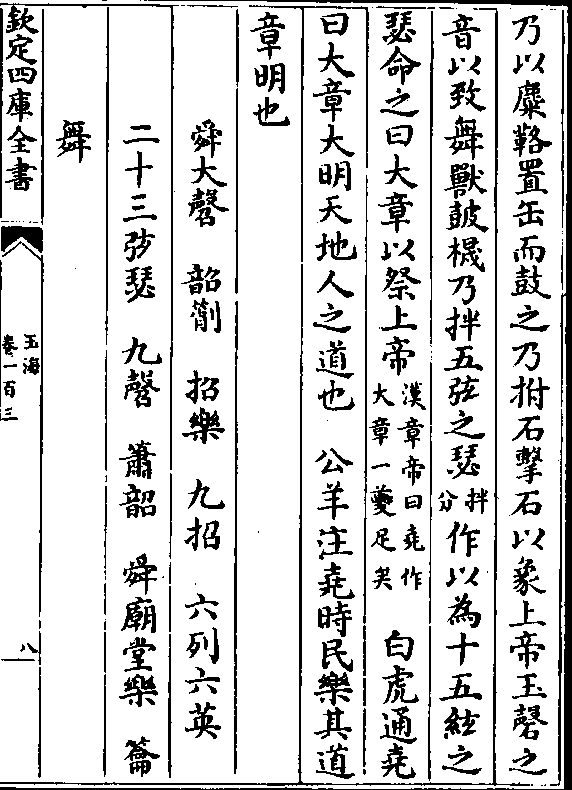 乃以麋𩊚置缶而鼓之乃拊石擊石以象上帝玉磬之
音以致舞獸瞽𣝔乃拌五弦之瑟拌分作以為十五絃之
瑟命之曰大章以祭上帝漢章帝曰堯作大章一夔足矣 白虎通堯
曰大章大明天地人之道也 公羊注堯時民樂其道
章明也
舜大㲈 韶箾 招樂 九招 六列六英
二十三弦瑟 九㲈 簫韶 舜廟堂樂 籥
舞
欽定四庫全書
玉海
卷一百三
八